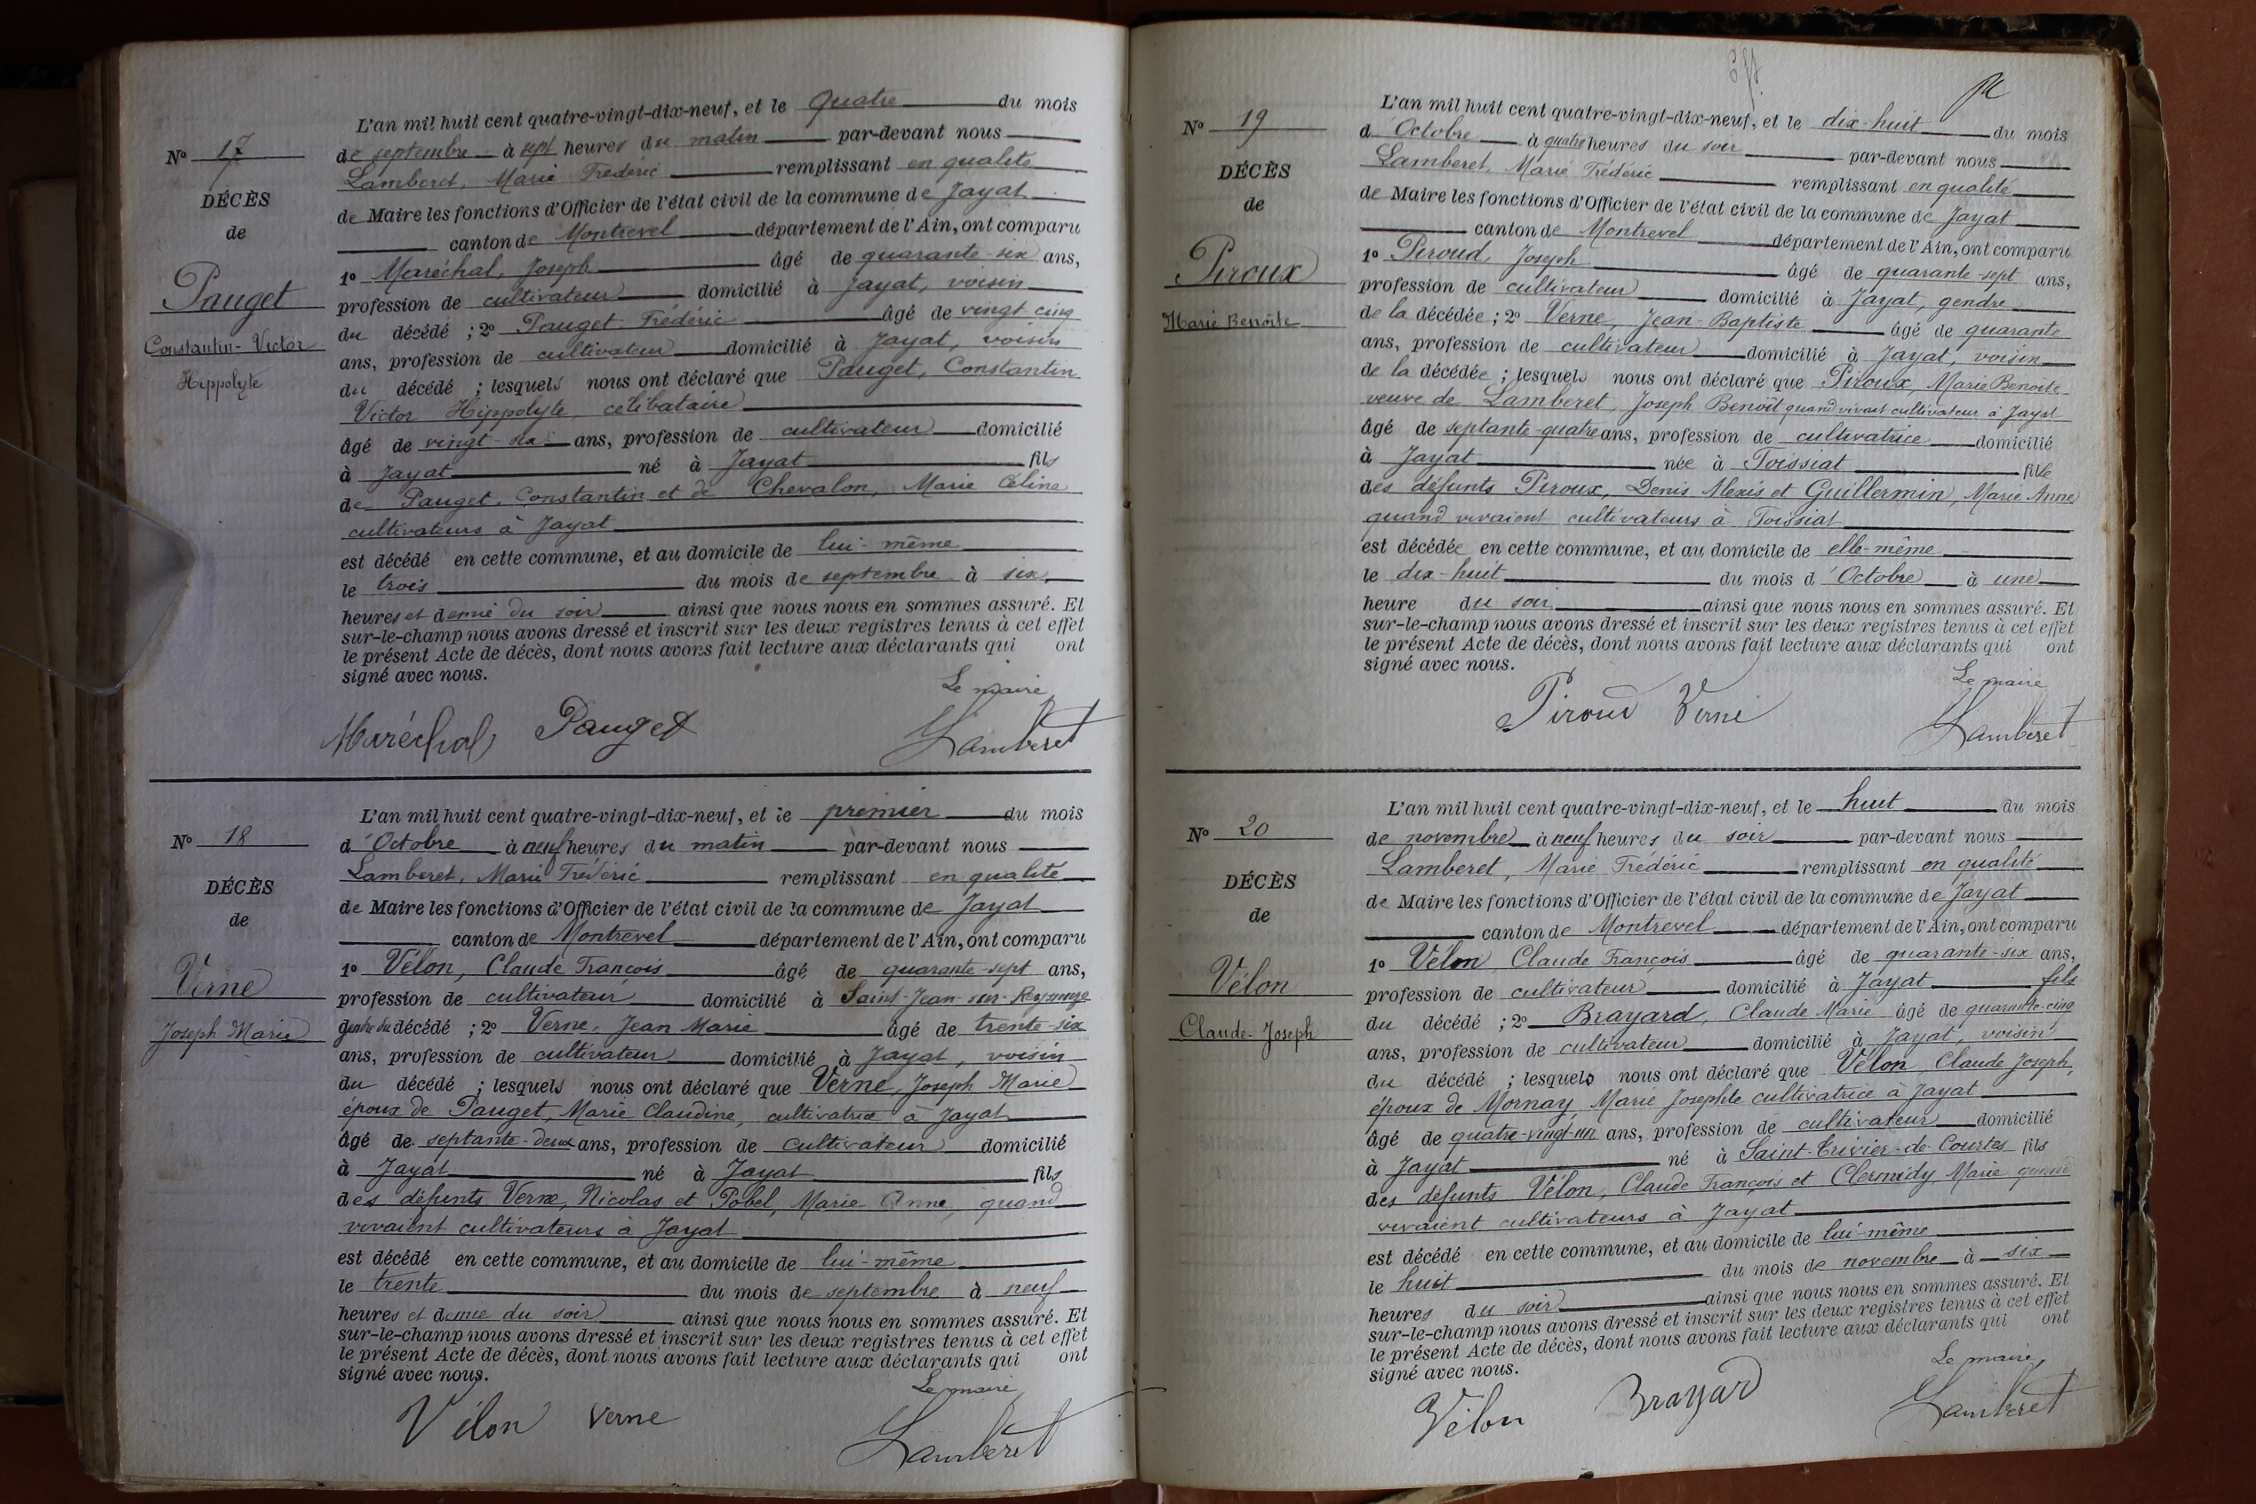 N° 17
DÉCÈS
de
Pauget
Constantin-Victor
Hippolyte
L'an mil huit cent quatre-vingt-dix-neuf, et le quatre du mois
de septembre à sept heures du matin par-devant nous
Lamberet, Marie Frédéric remplissant en qualité
de Maire les fonctions d'Officier de l'état civil de la commune de Jayat
canton de Montrevel département de l'Ain, ont comparu
1° Maréchal, Joseph âgé de quarante-six ans,
profession de cultivateur domicilié à Jayat, voisin
du décédé ; 2° Pauget Frédéric âgé de vingt cinq
ans, profession de cultivateur domicilié à Jayat, voisin
du décédé ; lesquels nous ont déclaré que Pauget, Constantin
Victor Hippolyte, célibataire
âgé de vingt-six ans, profession de cultivateur domicilié
à Jayat né à Jayat fils
de Pauget, Constantin et de Chevalon, Marie Céline
cultivateurs à Jayat
est décédé en cette commune, et au domicile de lui-même
le trois du mois de septembre à six
heures et demie du soir ainsi que nous nous en sommes assuré. Et
sur-le-champ nous avons dressé et inscrit sur les deux registres tenus à cet effet
le présent Acte de décès, dont nous avons fait lecture aux déclarants qui ont
signé avec nous.
Le maire
Maréchal Pauget Lamberet
N° 18
DÉCÈS
de
Verne
Joseph Marie
L'an mil huit cent quatre-vingt-dix-neuf, et le premier du mois
d'Octobre à neuf heures du matin par-devant nous
Lamberet, Marie Frédéric remplissant en qualité
de Maire les fonctions d'Officier de l'état civil de la commune de Jayat
canton de Montrevel département de l'Ain, ont comparu
1° Vélon, Claude François âgé de quarante-sept ans,
profession de cultivateur domicilié à Saint-Jean-sur-Reyssouze
gendre du décédé ; 2° Verne, Jean Marie âgé de trente-six
ans, profession de cultivateur domicilié à Jayat, voisin
du décédé ; lesquels nous ont déclaré que Verne, Joseph Marie
époux de Pauget, Marie Claudine, cultivatrice à Jayat
âgé de septante-deux ans, profession de cultivateur domicilié
à Jayat né à Jayat fils
des défunts Verne, Nicolas et Pobel, Marie Anne, quand
vivaient cultivateurs à Jayat
est décédé en cette commune, et au domicile de lui-même
le trente du mois de septembre à neuf
heures et demie du soir ainsi que nous nous en sommes assuré. Et
sur-le-champ nous avons dressé et inscrit sur les deux registres tenus à cet effet
le présent Acte de décès, dont nous avons fait lecture aux déclarants qui ont
signé avec nous.
Le maire
Vélon Verne Lamberet
N° 19
DÉCÈS
de
Piroux
Marie Benoîte
L'an mil huit cent quatre-vingt-dix-neuf, et le dix-huit du mois
d'Octobre à quatre heures du soir par-devant nous
Lamberet, Marie Frédéric remplissant en qualité
de Maire les fonctions d'Officier de l'état civil de la commune de Jayat
canton de Montrevel département de l'Ain, ont comparu
1° Piroud, Joseph âgé de quarante-sept ans,
profession de cultivateur domicilié à Jayat, gendre
de la décédée ; 2° Verne, Jean-Baptiste âgé de quarante
ans, profession de cultivateur domicilié à Jayat, voisin
de la décédée ; lesquels nous ont déclaré que Piroux, Marie Benoîte
veuve de Lamberet, Joseph Benoît quand vivant cultivateur à Jayat
âgé de septante-quatre ans, profession de cultivatrice domicilié
à Jayat née à Foissiat fille
des défunts Piroux, Denis Alexis et Guillermin, Marie Anne
quand vivaient cultivateurs à Foissiat
est décédée en cette commune, et au domicile de elle-même
le dix-huit du mois d'Octobre à une
heure du soir ainsi que nous nous en sommes assuré. Et
sur-le-champ nous avons dressé et inscrit sur les deux registres tenus à cet effet
le présent Acte de décès, dont nous avons fait lecture aux déclarants qui ont
signé avec nous.
Le maire
Piroud Verne Lamberet
N° 20
DÉCÈS
de
Vélon
Claude-Joseph
L'an mil huit cent quatre-vingt-dix-neuf, et le huit du mois
de novembre à neuf heures du soir par-devant nous
Lamberet, Marie Frédéric remplissant en qualité
de Maire les fonctions d'Officier de l'état civil de la commune de Jayat
canton de Montrevel département de l'Ain, ont comparu
1° Vélon Claude François âgé de quarante-six ans,
profession de cultivateur domicilié à Jayat fils
du décédé ; 2° Brayard, Claude Marie âgé de quarante-cinq
ans, profession de cultivateur domicilié à Jayat, voisin
du décédé ; lesquels nous ont déclaré que Vélon, Claude Joseph,
époux de Mornay, Marie Josephte cultivatrice à Jayat
âgé de quatre-vingt-un ans, profession de cultivateur domicilié
à Jayat né à Saint-Trivier-de-Courtes fils
des défunts Vélon, Claude François et Clermidy, Marie quand
vivaient cultivateurs à Jayat
est décédé en cette commune, et au domicile de lui-même
le huit du mois de novembre à six
heures du soir ainsi que nous nous en sommes assuré. Et
sur-le-champ nous avons dressé et inscrit sur les deux registres tenus à cet effet
le présent Acte de décès, dont nous avons fait lecture aux déclarants qui ont
signé avec nous.
Le maire
Vélon Brayard Lamberet